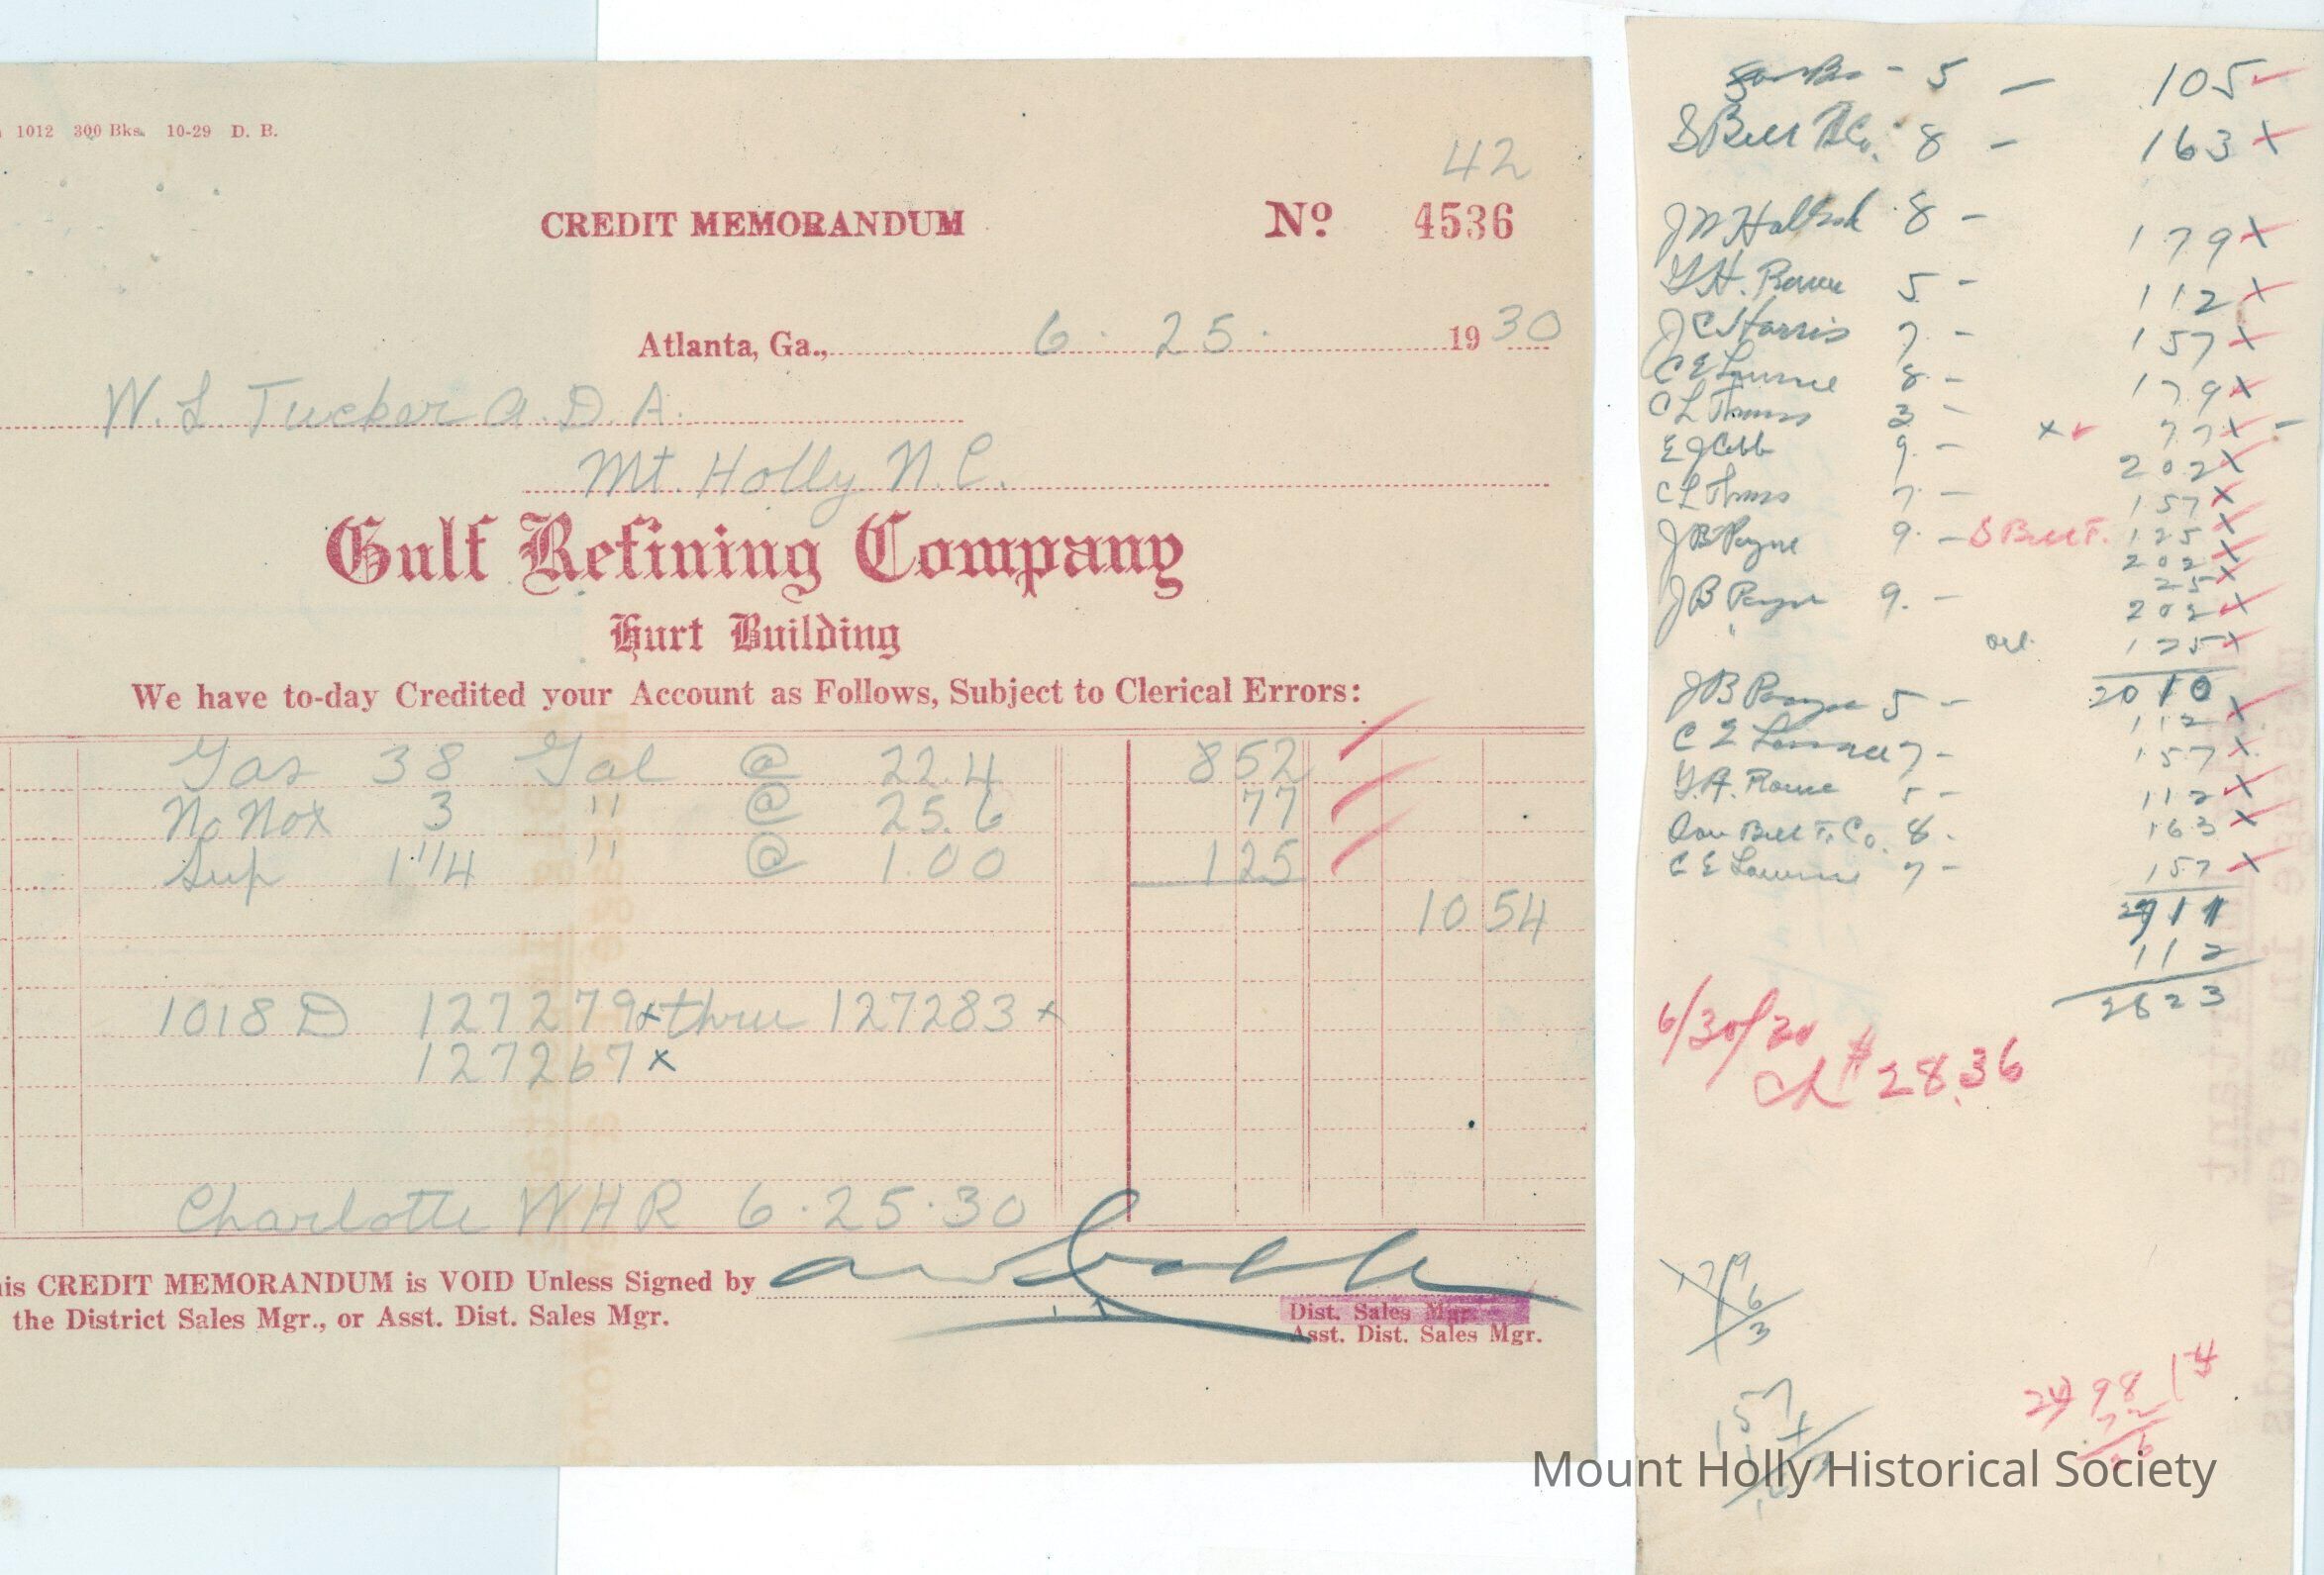 1012 300 Bks. 10-29 D. B.
42
CREDIT MEMORANDUM No 4536
Atlanta, Ga., 6. 25. 1930
W. L. Tucker A. D. A.
Mt. Holly N. C.
Gulf Refining Company
Hurt Building
We have to-day Credited your Account as Follows, Subject to Clerical Errors:
Gas 38 Gal @ 22.4 852
No Nox 3 " @ 25.6 77
Sup 1 1/4 " @ 1.00 125
10 54
1018 D 127279 x thru 127283 x
127267 x
Charlotte WHR 6.25.30
is CREDIT MEMORANDUM is VOID Unless Signed by
the District Sales Mgr., or Asst. Dist. Sales Mgr.
Dist. Sales Mgr.
Asst. Dist. Sales Mgr.
5 — 105
S Bell T. Co. 8 — 163 x
J W 8 — 179 x
5 — 112 x
J C Harris 7 — 157 x
C E 8 — 179 x
C L 3 — x 77 x —
E J Cobb 9 — 202 x
C L 7 — 157 x
J B Payne 9 — S Bell T. 125 x
202 x
25 x
J B Payne 9. — 202 x
" oil 125 x
2010
J B Payne 5 — 112 x
C E 7 — 157 x
5 — 112 x
Sou Bell T. Co. 8 - 163 x
C E 7 — 157 x
112
2823
6/30/30
Ck # 28.36
179
6
3
157
98
Mount Holly Historical Society